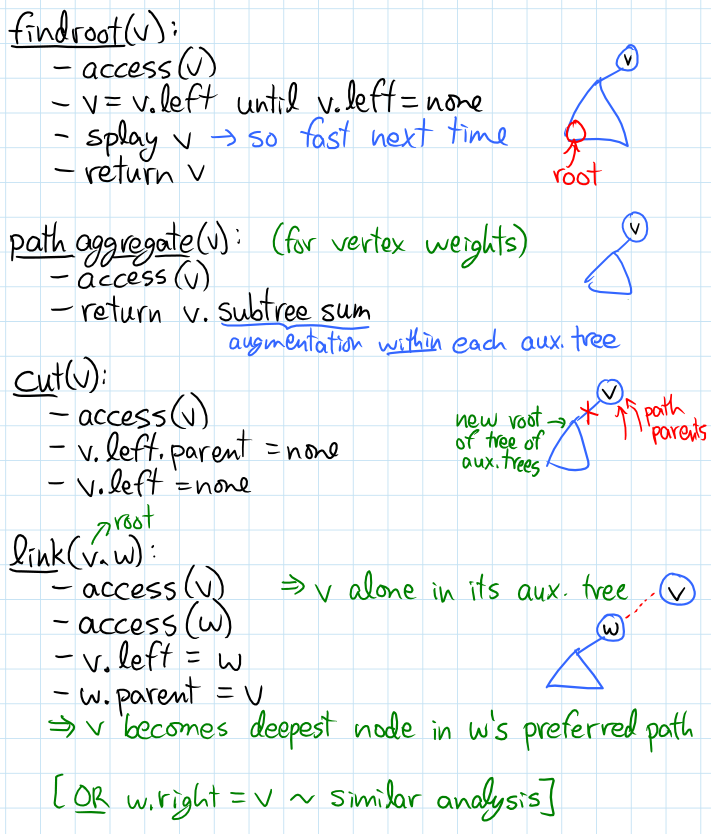 findroot(v):
- access(v)
- v = v.left until v.left = none
- splay v → so fast next time
- return v
v
root
path aggregate(v): (for vertex weights)
- access(v)
- return v. subtree sum
augmentation within each aux. tree
v
cut(v):
- access(v)
- v.left.parent = none
- v.left = none
v
new root →
of tree of
aux. trees
path
parents
root
link(v,w):
- access(v) ⇒ v alone in its aux. tree
- access(w)
- v.left = w
- w.parent = v
v
w
⇒ v becomes deepest node in w's preferred path
[OR w.right = v ~ similar analysis]